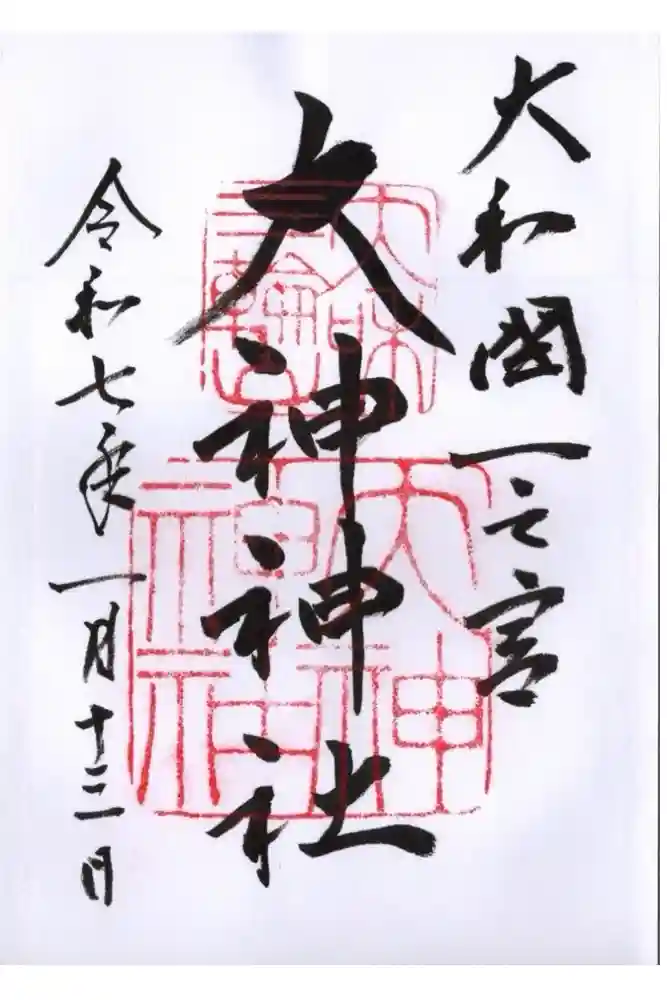 大和國一之宮
大神神社
令和七年一月十三日